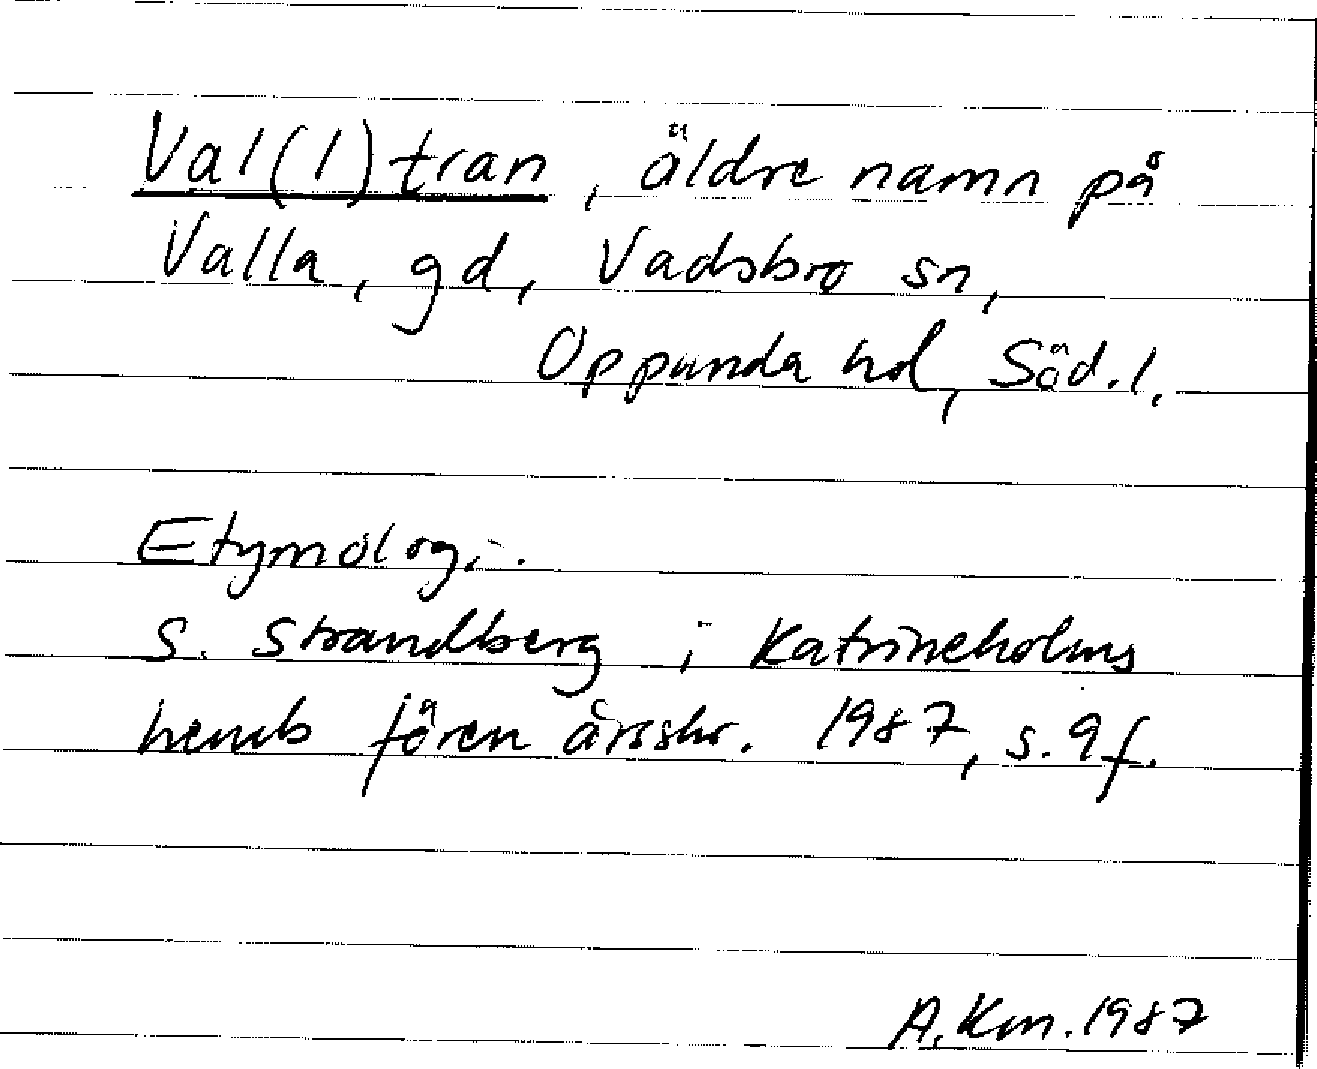 Val(l)tran, äldre namn på
Valla, gd, Vadsbro sn,
Oppunda hd, Söd.l.
Etymologi.
S. Strandberg i Katrineholms
hemb fören årsskr. 1987, s. 9 f.
A. Km. 1987